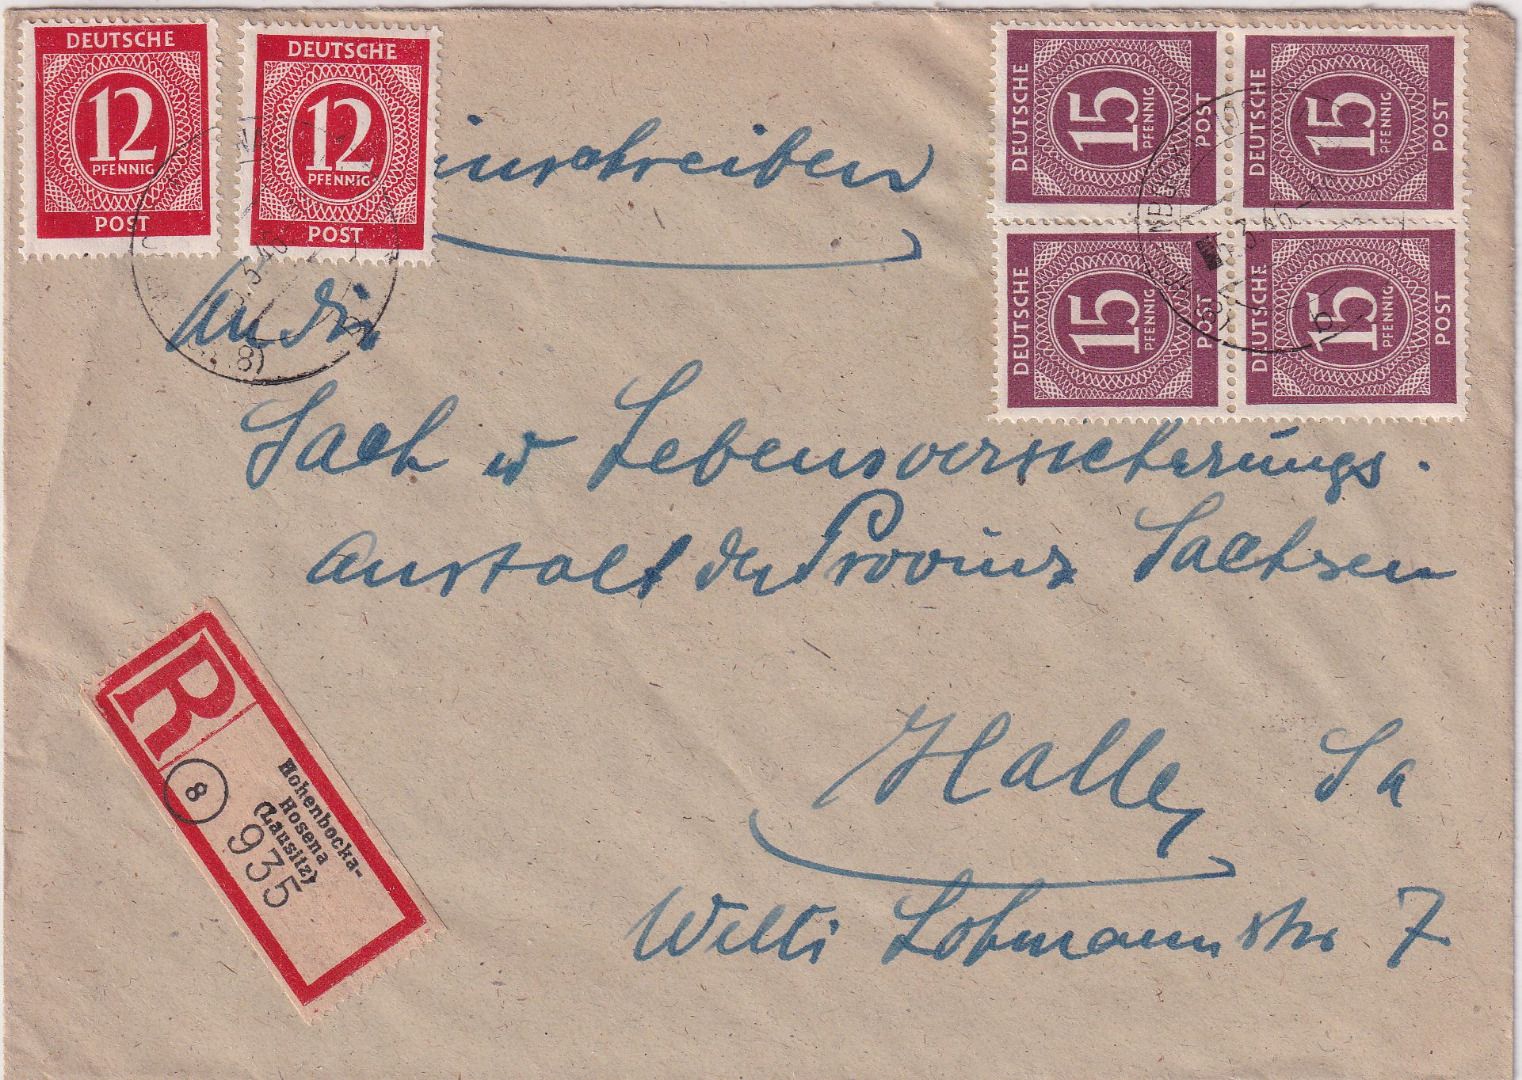 DEUTSCHE
12
PFENNIG
POST
DEUTSCHE
12
PFENNIG
POST
DEUTSCHE
15
PFENNIG
POST
DEUTSCHE
15
PFENNIG
POST
DEUTSCHE
15
PFENNIG
POST
DEUTSCHE
15
PFENNIG
POST
inschreiben
3.46
8)
3.46
b
An die
Sach u Lebensversicherungs.
Anstalt der Provinz Sachsen
Halle, Sa
Willi Lohmann str 7
R
8
Hohenbocka-
Hosena
(Lausitz)
935